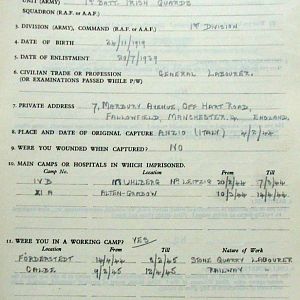 UNIT (ARMY) 1st BATT. IRISH GUARDS
SQUADRON (R.A.F. or A.A.F.)
3. DIVISION (ARMY), COMMAND (R.A.F. or A.A.F.) 1st DIVISION
4. DATE OF BIRTH 24/11/1919
5. DATE OF ENLISTMENT 20/7/1939
6. CIVILIAN TRADE OR PROFESSION GENERAL LABOURER.
(OR EXAMINATIONS PASSED WHILE P/W)
7. PRIVATE ADDRESS 7, MARBURY AVENUE, OFF HART ROAD,
FALLOWFIELD, MANCHESTER, ENGLAND.
8. PLACE AND DATE OF ORIGINAL CAPTURE ANZIO (ITALY) 4/2/44
9. WERE YOU WOUNDED WHEN CAPTURED? NO
10. MAIN CAMPS OR HOSPITALS IN WHICH IMPRISONED.
Camp No. Location From Till
IV B MUHLBERG Nr LEIPZIG 20/2/44 7/3/44
XI A ALTEN-GRABOW 10/3/44 14/4/44
11. WERE YOU IN A WORKING CAMP? YES
Location From Till Nature of Work
FÖRDERSTEDT 14/4/44 8/2/45 STONE QUARRY LABOURER
CALBE 9/2/45 12/4/45 RAILWAY "